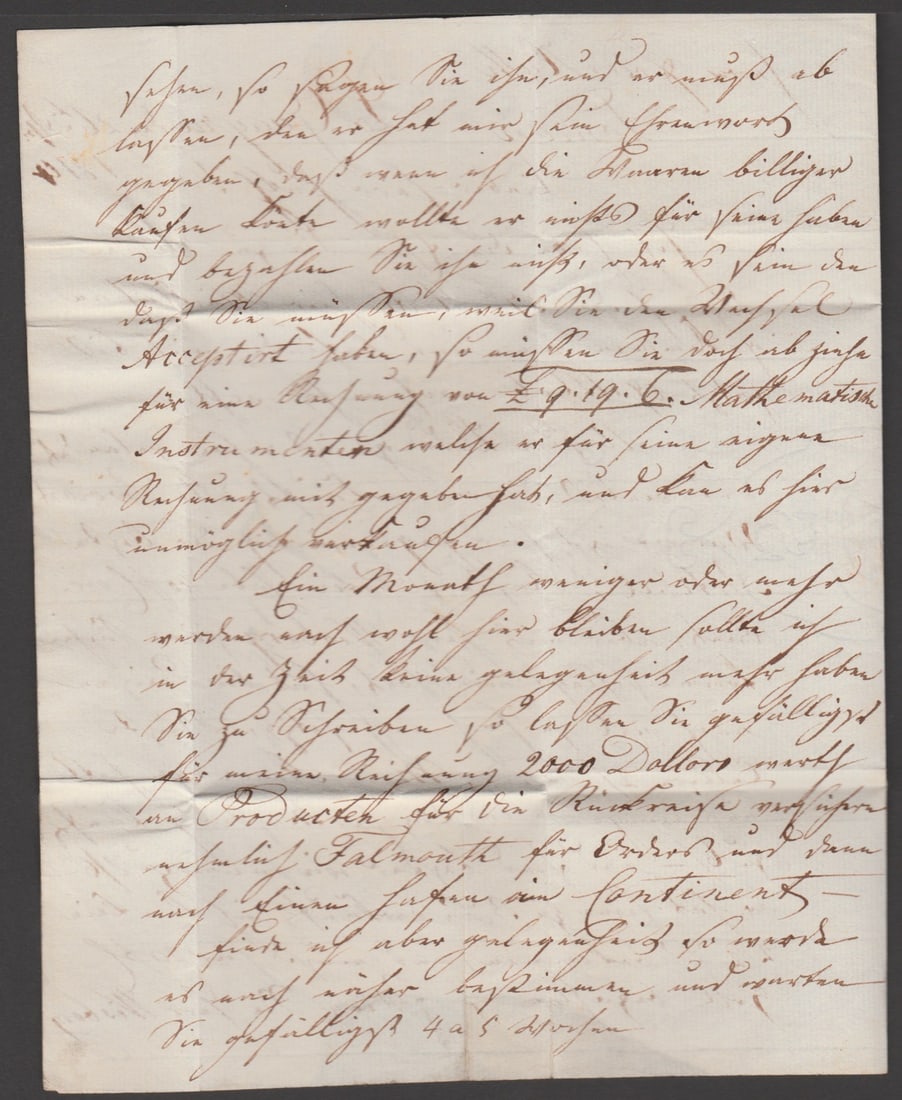 sehen, so sagen Sie ihn, und er muß ab
lassen, den er hat mir sein Ehrenwort
gegeben, daß wenn ich die Waaren billiger
kaufen konte wollte er nichts für seine haben
und bezahlen Sie ihn nicht, oder es sein den
daß Sie müssen, weil Sie den Wechsel
Acceptirt haben, so müssen Sie doch ab ziehn
für eine Rechnung von £ 9. 19. 6. Mathematische
Instrumenten welche er für seine eigene
Rechnung mit gegeben hat, und kan es hier
unmöglich verkaufen.
Ein Monath weniger oder mehr
werden noch wohl hier bleiben sollte ich
in der Zeit keine gelegenheit mehr haben
Sie zu Schreiben so lassen Sie gefälligst
für meine Rechnung 2000 Dollars werth
an Producten für die Rückreise versichern
nehmlich Falmouth für Orders und dann
nach Einen Hafen am Continent —
finde ich aber gelegenheit so werde
es noch näher bestimmen und warten
Sie gefälligst 4 a 5 Wochen